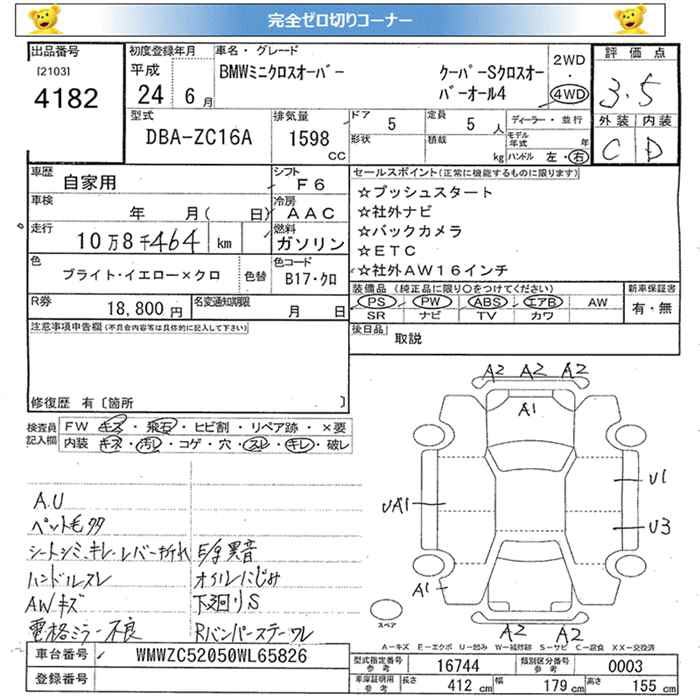 完全ゼロ切りコーナー
出品番号 初度登録年月 車名・グレード
[2103] 平成 BMWミニクロスオーバー クーパーSクロスオーバーオール4 2WD・4WD 評価点
4182 24 6月 3.5
型式 排気量 ドア 5 定員 5 人 ディーラー・並行 外装 内装
DBA-ZC16A 1598 CC 形状 積載 kg モデル年式 年 ハンドル 左・右 C D
車歴 自家用 シフト F6 セールスポイント(正常に機能するものに限ります)
車検 年 月( 日) 冷房 AAC ☆プッシュスタート
☆社外ナビ
走行 10万8千464 km 燃料 ガソリン ☆バックカメラ
☆ETC
色 ブライト・イエロー×クロ 色替 色コード B17・クロ ☆社外AW16インチ
装備品(純正品に限り○をつけてください) 新車保証書
R券 18,800円 名変通知期限 月 日 PS PW ABS エアB AW 有・無
SR ナビ TV カワ
注意事項申告欄(不具合内容等は具体的に記入して下さい) 後日品 取説
修復歴 有〔箇所 〕
検査員記入欄 FW キズ・飛石・ヒビ割・リペア跡・×要
内装 キズ・汚レ・コゲ・穴・スレ・キレ・破レ
A2 A2 A2
A1
UA1
U1
U3
A1
A2 A2
スペア
A.U
ペット毛多
シートシミ、キレ、レバー折れ E/g異音
ハンドルスレ オイルにじみ
AWキズ 下廻りS
電格ミラー不良 Rバンパーステーワレ
A-キズ E-エクボ U-凹み W-補修跡 S-サビ C-腐食 XX-交換済
車台番号 WMWZC52050WL65826
型式指定番号 参考 16744 類別区分番号 参考 0003
登録番号
車庫証明用 参考 長さ 412 cm 幅 179 cm 高さ 155 cm